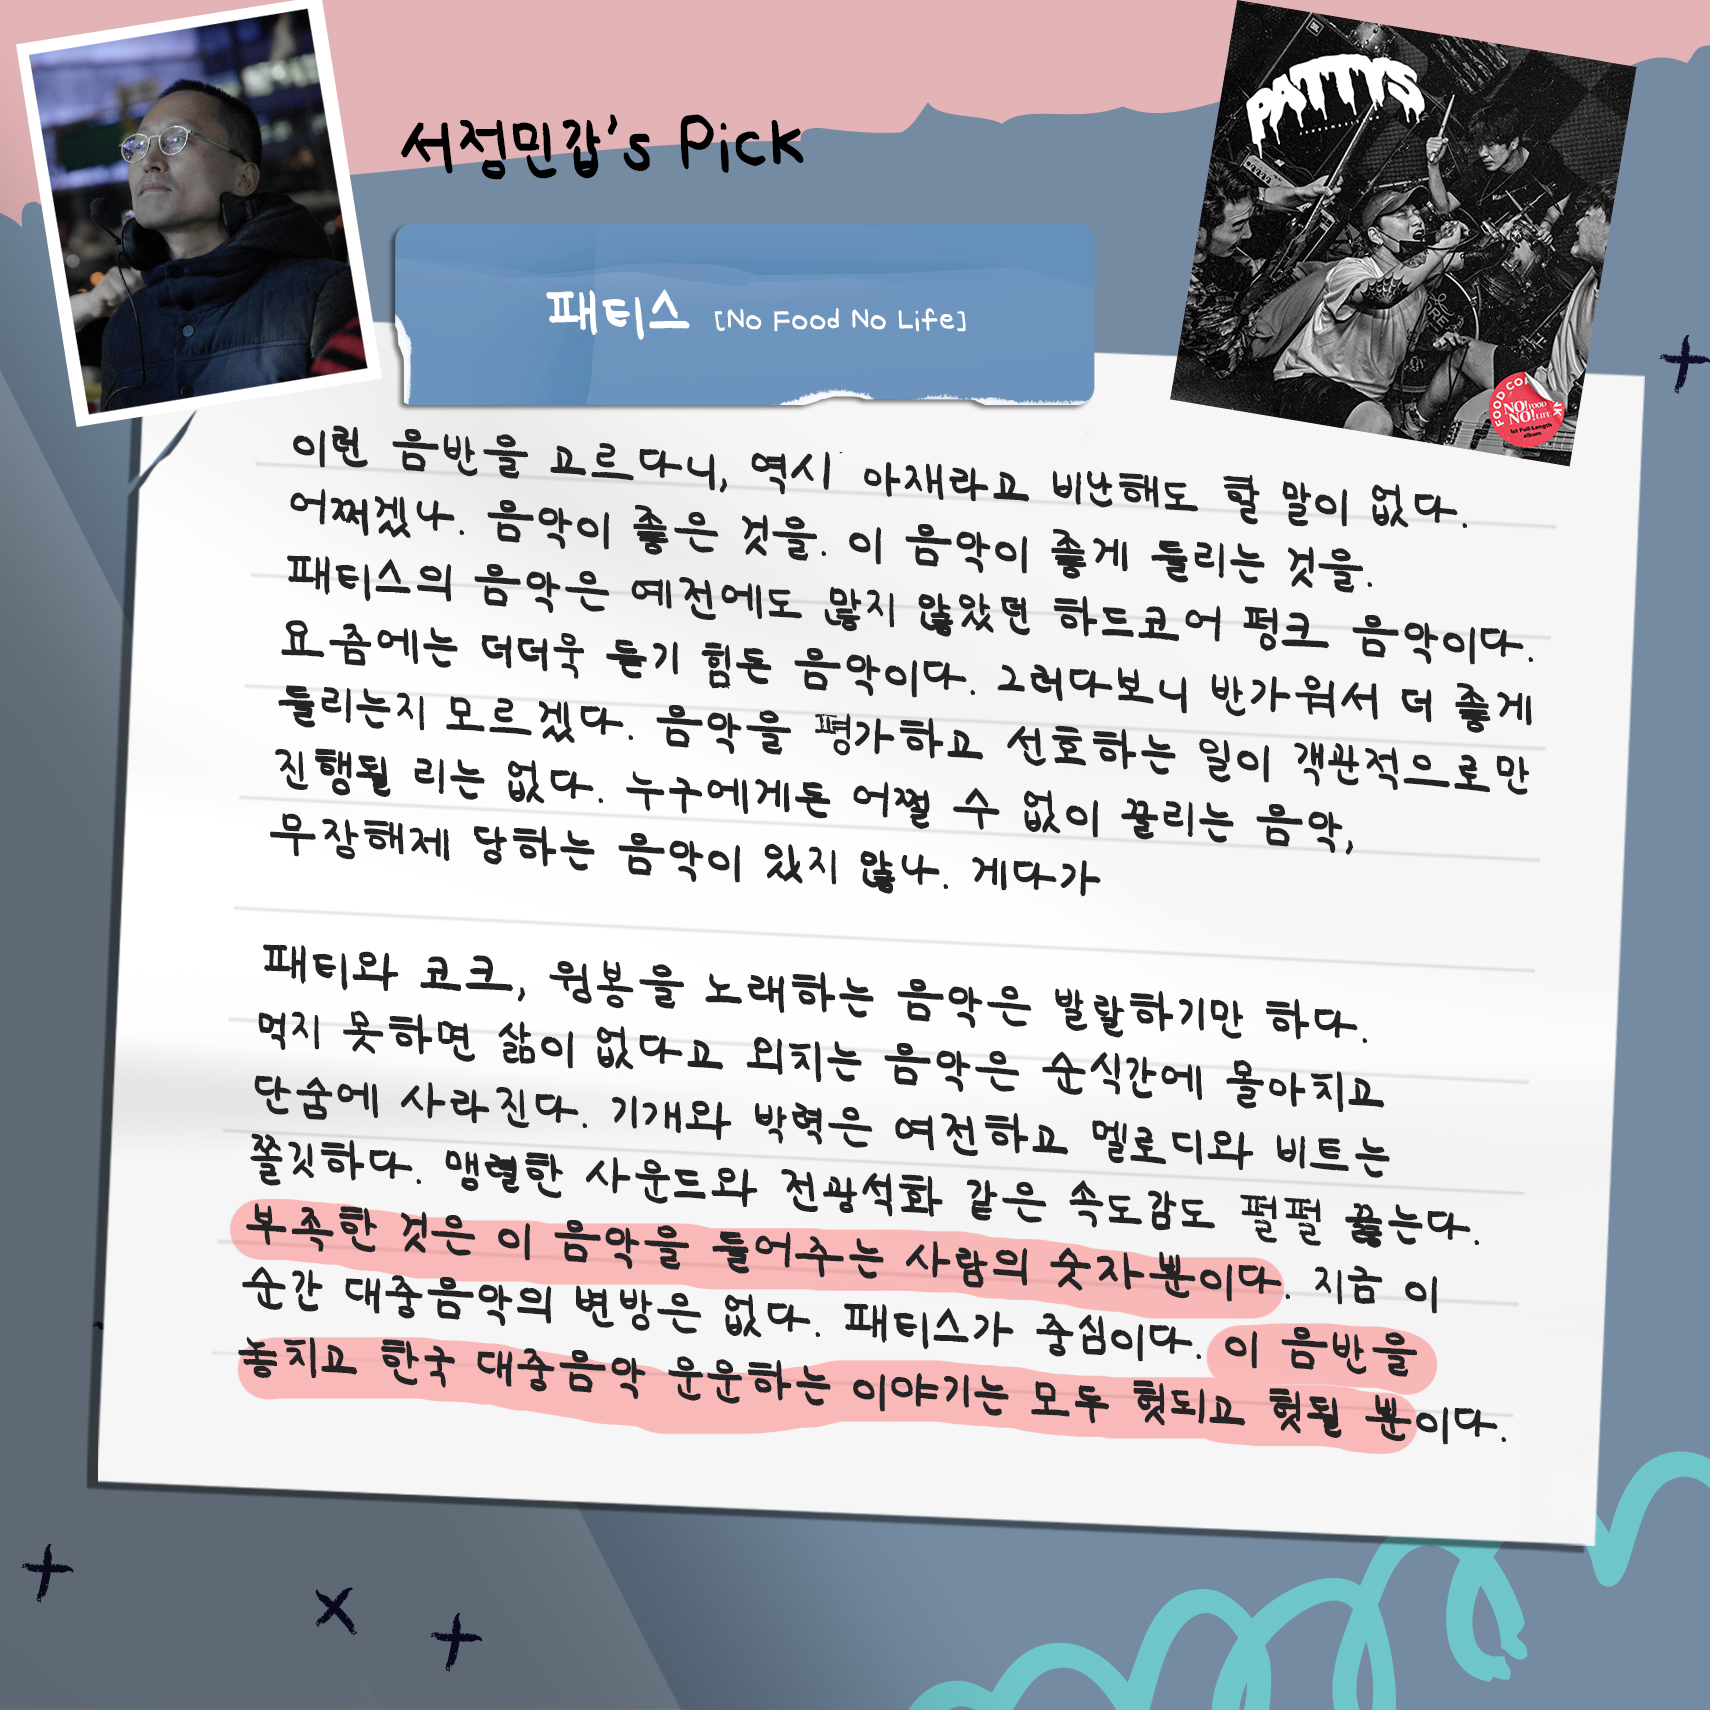 서정민갑's Pick
PATTYS
패티스 [No Food No Life]
NO! FOOD
NO! LIFE
1st Full-Length
album
이런 음반을 고르다니, 역시 아재라고 비난해도 할 말이 없다.
어쩌겠나. 음악이 좋은 것을. 이 음악이 좋게 들리는 것을.
패티스의 음악은 예전에도 많지 않았던 하드코어 펑크 음악이다.
요즘에는 더더욱 듣기 힘든 음악이다. 그러다보니 반가워서 더 좋게
들리는지 모르겠다. 음악을 평가하고 선호하는 일이 객관적으로만
진행될 리는 없다. 누구에게든 어쩔 수 없이 끌리는 음악,
무장해제 당하는 음악이 있지 않나. 게다가
패티와 코크, 윙봉을 노래하는 음악은 발랄하기만 하다.
먹지 못하면 삶이 없다고 외치는 음악은 순식간에 몰아치고
단숨에 사라진다. 기개와 박력은 여전하고 멜로디와 비트는
쫄깃하다. 맹렬한 사운드와 전광석화 같은 속도감도 펄펄 끓는다.
부족한 것은 이 음악을 들어주는 사람의 숫자뿐이다. 지금 이
순간 대중음악의 변방은 없다. 패티스가 중심이다. 이 음반을
놓치고 한국 대중음악 운운하는 이야기는 모두 헛되고 헛될 뿐이다.